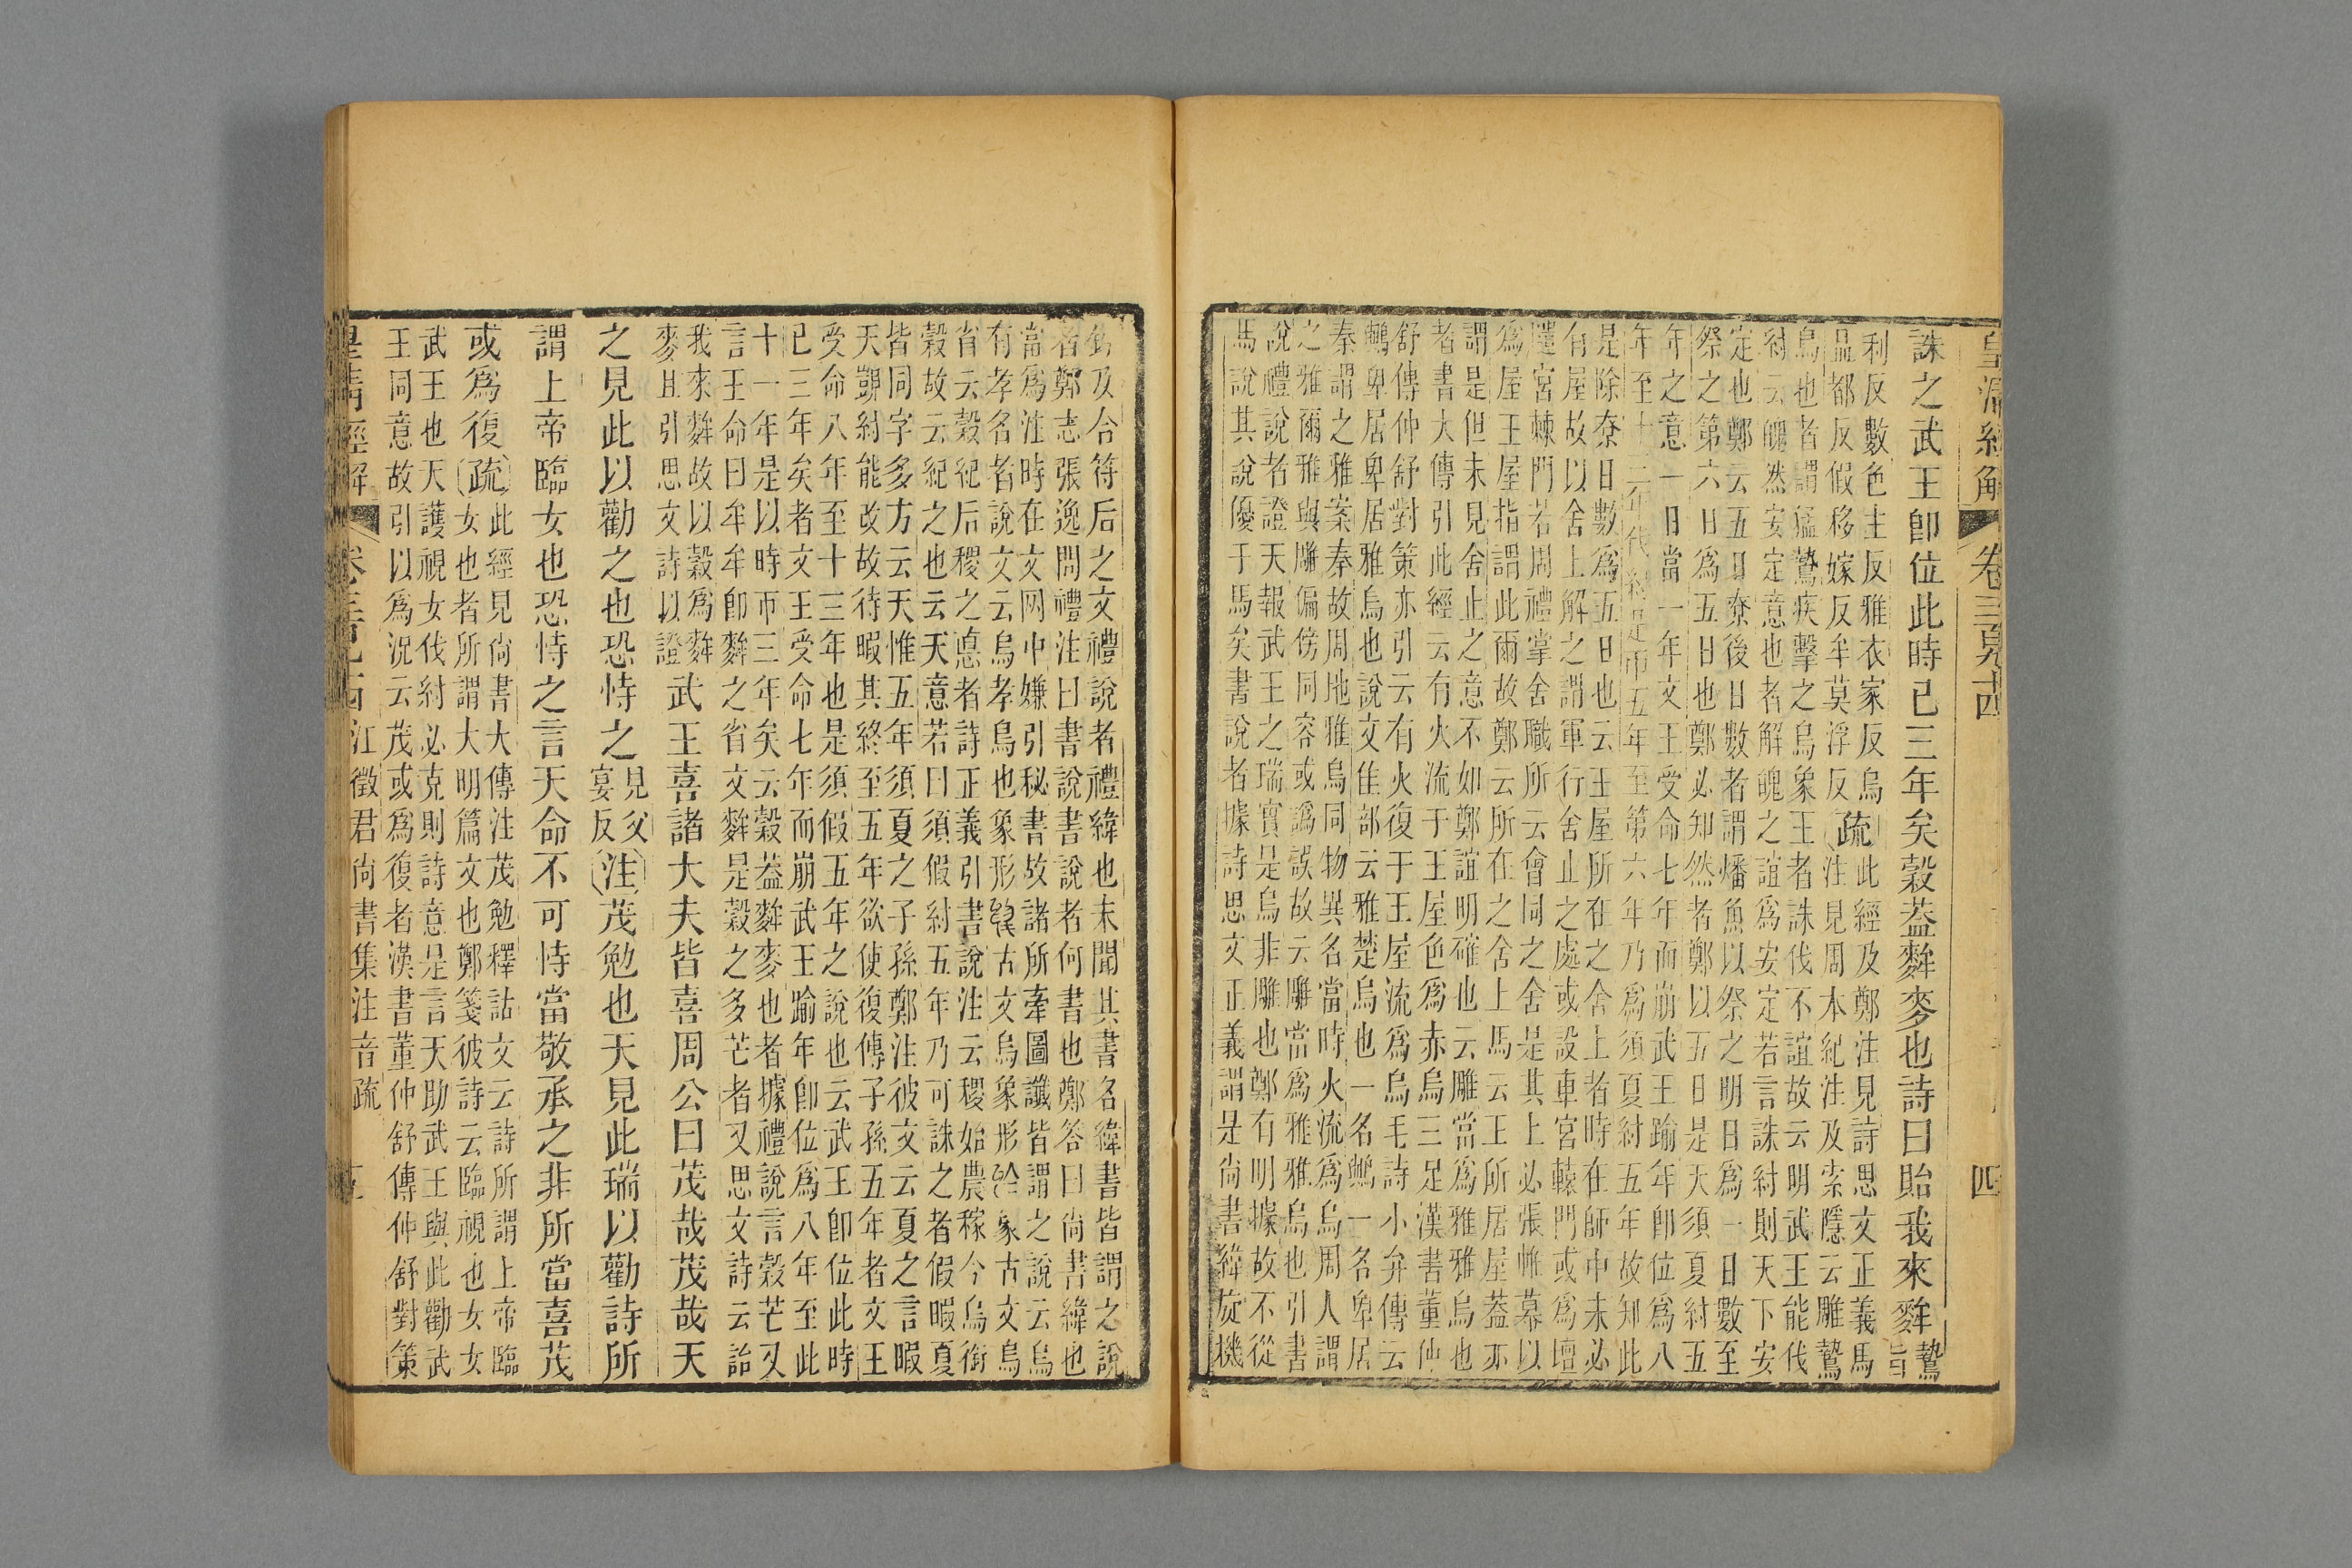 皇清經解
卷三百九十四
四
誅之武王卽位此時已三年矣穀蓋麰麥也詩曰貽我來麰鷙旨
利反數色主反雅衣家反烏
品都反假移嫁反牟莫浮反
疏
此經及鄭注見詩思文正義馬
注見周本紀注及索隱云雕鷙
烏也者謂猛鷙疾擊之烏象王者誅伐不誼故云明武王能伐
紂云魄然安定意也者解魄之誼爲安定若言誅紂則天下安
定也鄭云五日燎後日數者謂燔魚以祭之明日爲一日數至
祭之第六日爲五日也鄭必知然者鄭以五日是天須夏紂五
年之意一日當一年文王受命七年而崩武王踰年卽位爲八
年至十三年伐紂是市五年至第六年乃爲須夏紂五年故知此
是除燎日數爲五日也云王屋所在之舍上者時在師中未必
有屋故以舍上解之謂軍行舍止之處或設車宮轅門或爲壇
壝宮棘門若周禮掌舍職所云會同之舍是其上必張帷幕以
爲屋王屋指謂此爾故鄭云所在之舍上馬云王所居屋蓋亦
謂是但未見舍止之意不如鄭誼明確也云雕當爲雅雅烏也
者書大傳引此經云有火流于王屋色爲赤烏三足漢書董仲
舒傳仲舒對策亦引云有火復于王屋流爲烏毛詩小弁傳云
鸒卑居卑居雅烏也說文隹部云雅楚烏也一名鸒一名卑居
秦謂之雅案秦故周地雅烏同物異名當時火流爲烏周人謂
之雅爾雅與雕偏傍同容或譌誤故云雕當爲雅雅烏也引書
說禮說者證天報武王之瑞實是烏非雕也鄭有明據故不從
馬說其說優于馬矣書說者據詩思文正義謂是尙書緯旋機
鈐及合符后之文禮說者禮緯也未聞其書各緯書皆謂之說
者鄭志張逸問禮注曰書說書說者何書也鄭答曰尙書緯也
當爲注時在文网中嫌引秘書故諸所牽圖讖皆謂之說云烏
有孝名者說文云烏孝鳥也象形古文烏象形象古文烏
省云穀紀后稷之悳者詩正義引書說注云稷始農稼今烏銜
穀故云紀之也云天意若曰須假紂五年乃可誅之者假暇夏
皆同字多方云天惟五年須夏之子孫鄭注彼文云夏之言暇
天覬紂能改故待暇其終至五年欲使復傳子孫五年者文王
受命八年至十三年也是須假五年之說也云武王卽位此時
已三年矣者文王受命七年而崩武王踰年卽位爲八年至此
十一年是以時帀三年矣云穀蓋麰麥也者據禮說言穀芒又
言王命曰牟牟卽麰之省文麰是穀之多芒者又思文詩云詒
我來麰故以穀爲麰
麥且引思文詩以證
武王喜諸大夫皆喜周公曰茂哉茂哉天
之見此以勸之也恐恃之
見父
宴反
注
茂勉也天見此瑞以勸詩所
謂上帝臨女也恐恃之言天命不可恃當敬承之非所當喜茂
或爲復
疏
此經見尙書大傳注茂勉釋詁文云詩所謂上帝臨
女也者所謂大明篇文也鄭箋彼詩云臨視也女女
武王也天護視女伐紂必克則詩意是言天助武王與此勸武
王同意故引以爲況云茂或爲復者漢書董仲舒傳仲舒對策
皇清經解
江徵君尙書集注音疏